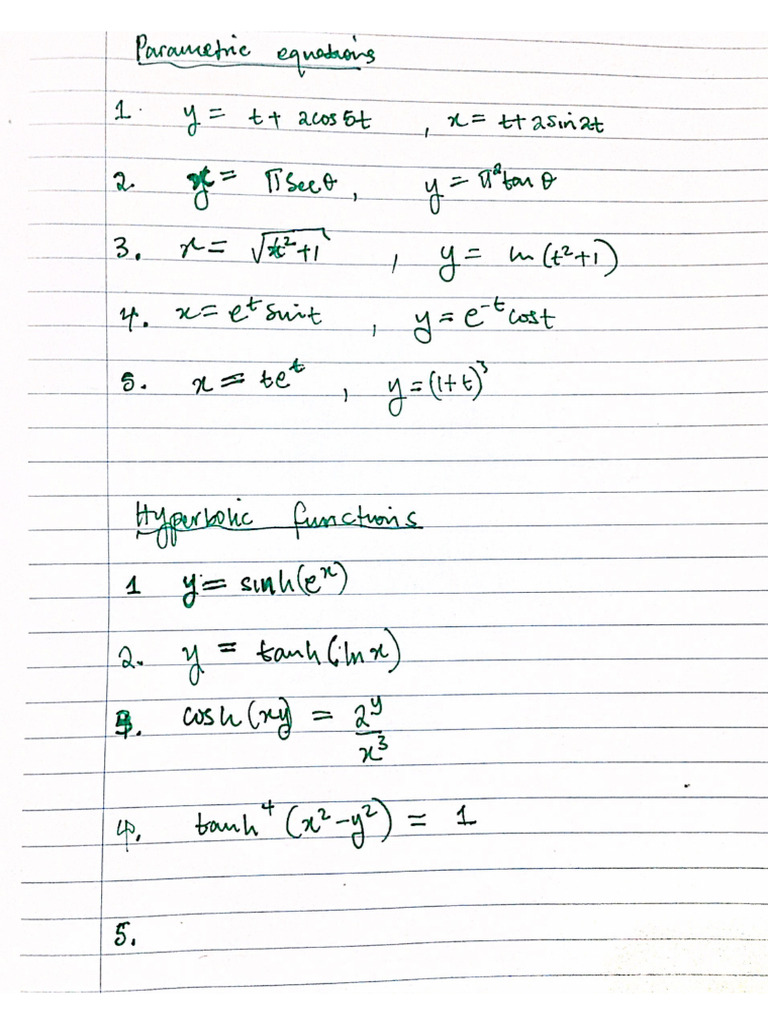 Parametric equations
1. y = t + 2cos5t , x = t+2sin2t
2. x = πsecθ, y = π²tanθ
3. x = √(t²+1) , y = ln(t²+1)
4. x = eᵗ sint , y = e⁻ᵗ cost
5. x = teᵗ , y = (1+t)³
Hyperbolic functions
1 y = sinh(eˣ)
2. y = tanh(lnx)
3. cosh(xy) = 2ʸ/x³
4. tanh⁴(x²-y²) = 1
5.